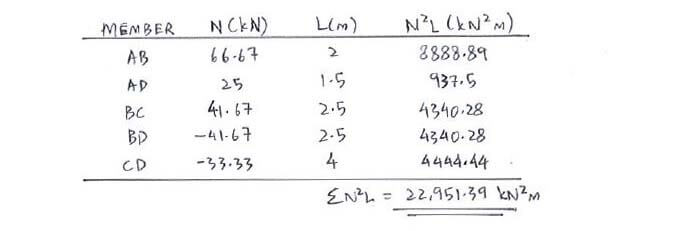 MEMBER N(kN) L(m) N²L (kN²m)
AB 66.67 2 8888.89
AD 25 1.5 937.5
BC 41.67 2.5 4340.28
BD -41.67 2.5 4340.28
CD -33.33 4 4444.44
ΣN²L = 22,951.39 kN²m